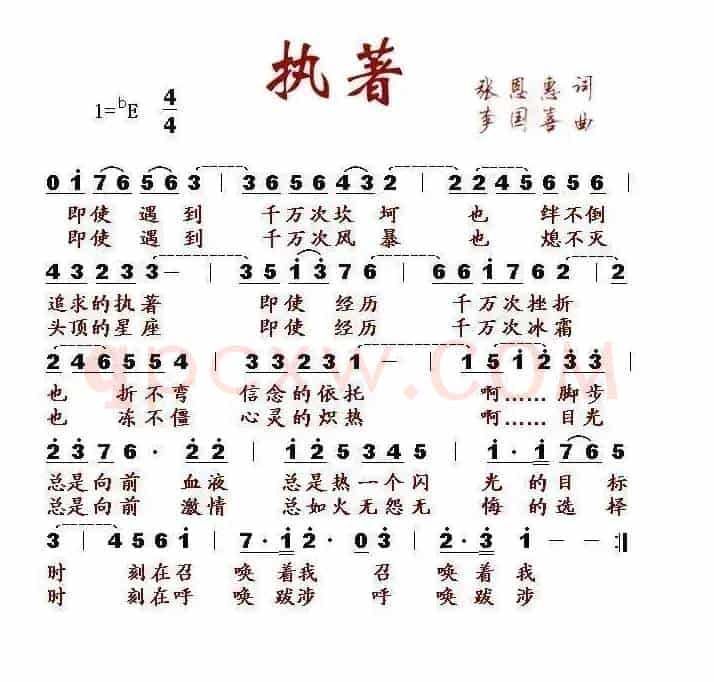 执著
张恩惠 词
李国喜 曲
1=ᵇE 4/4
0 1̇ 7 6 5 6 3 | 3 6 5 6 4 3 2 | 2 2 4 5 6 5 6 |
即使 遇 到 千万次坎 坷 也 绊不倒
即使 遇 到 千万次风 暴 也 熄不灭
4 3 2 3 3 3 — | 3 5 1̇ 3̇ 7 6 | 6 6 1̇ 7 6 2 | 2
追求的执著 即使 经历 千万次挫折
头顶的星座 即使 经历 千万次冰霜
2 4 6 5 5 4 | 3 3 2 3 1̇ — | 1 5 1̇ 2̇ 3̇ 3̇ |
也 折不弯 信念的依托 啊…… 脚步
也 冻不僵 心灵的炽热 啊…… 目光
2̇ 3̇ 7 6 · 2̇ 2̇ | 1̇ 2̇ 5 3 4 5 | 1̇ · 1̇ 7 6 5
总是向前 血液 总是热一个闪 光 的 目 标
总是向前 激情 总如火无怨无 悔 的 选 择
3 | 4 5 6 1̇ | 7 · 1̇ 2̇ · 0 3̇ | 2̇ · 3̇ 1̇ — :||
时 刻在召 唤 着我 召 唤 着 我
时 刻在呼 唤 跋涉 呼 唤 跋 涉
qpcxw.COM